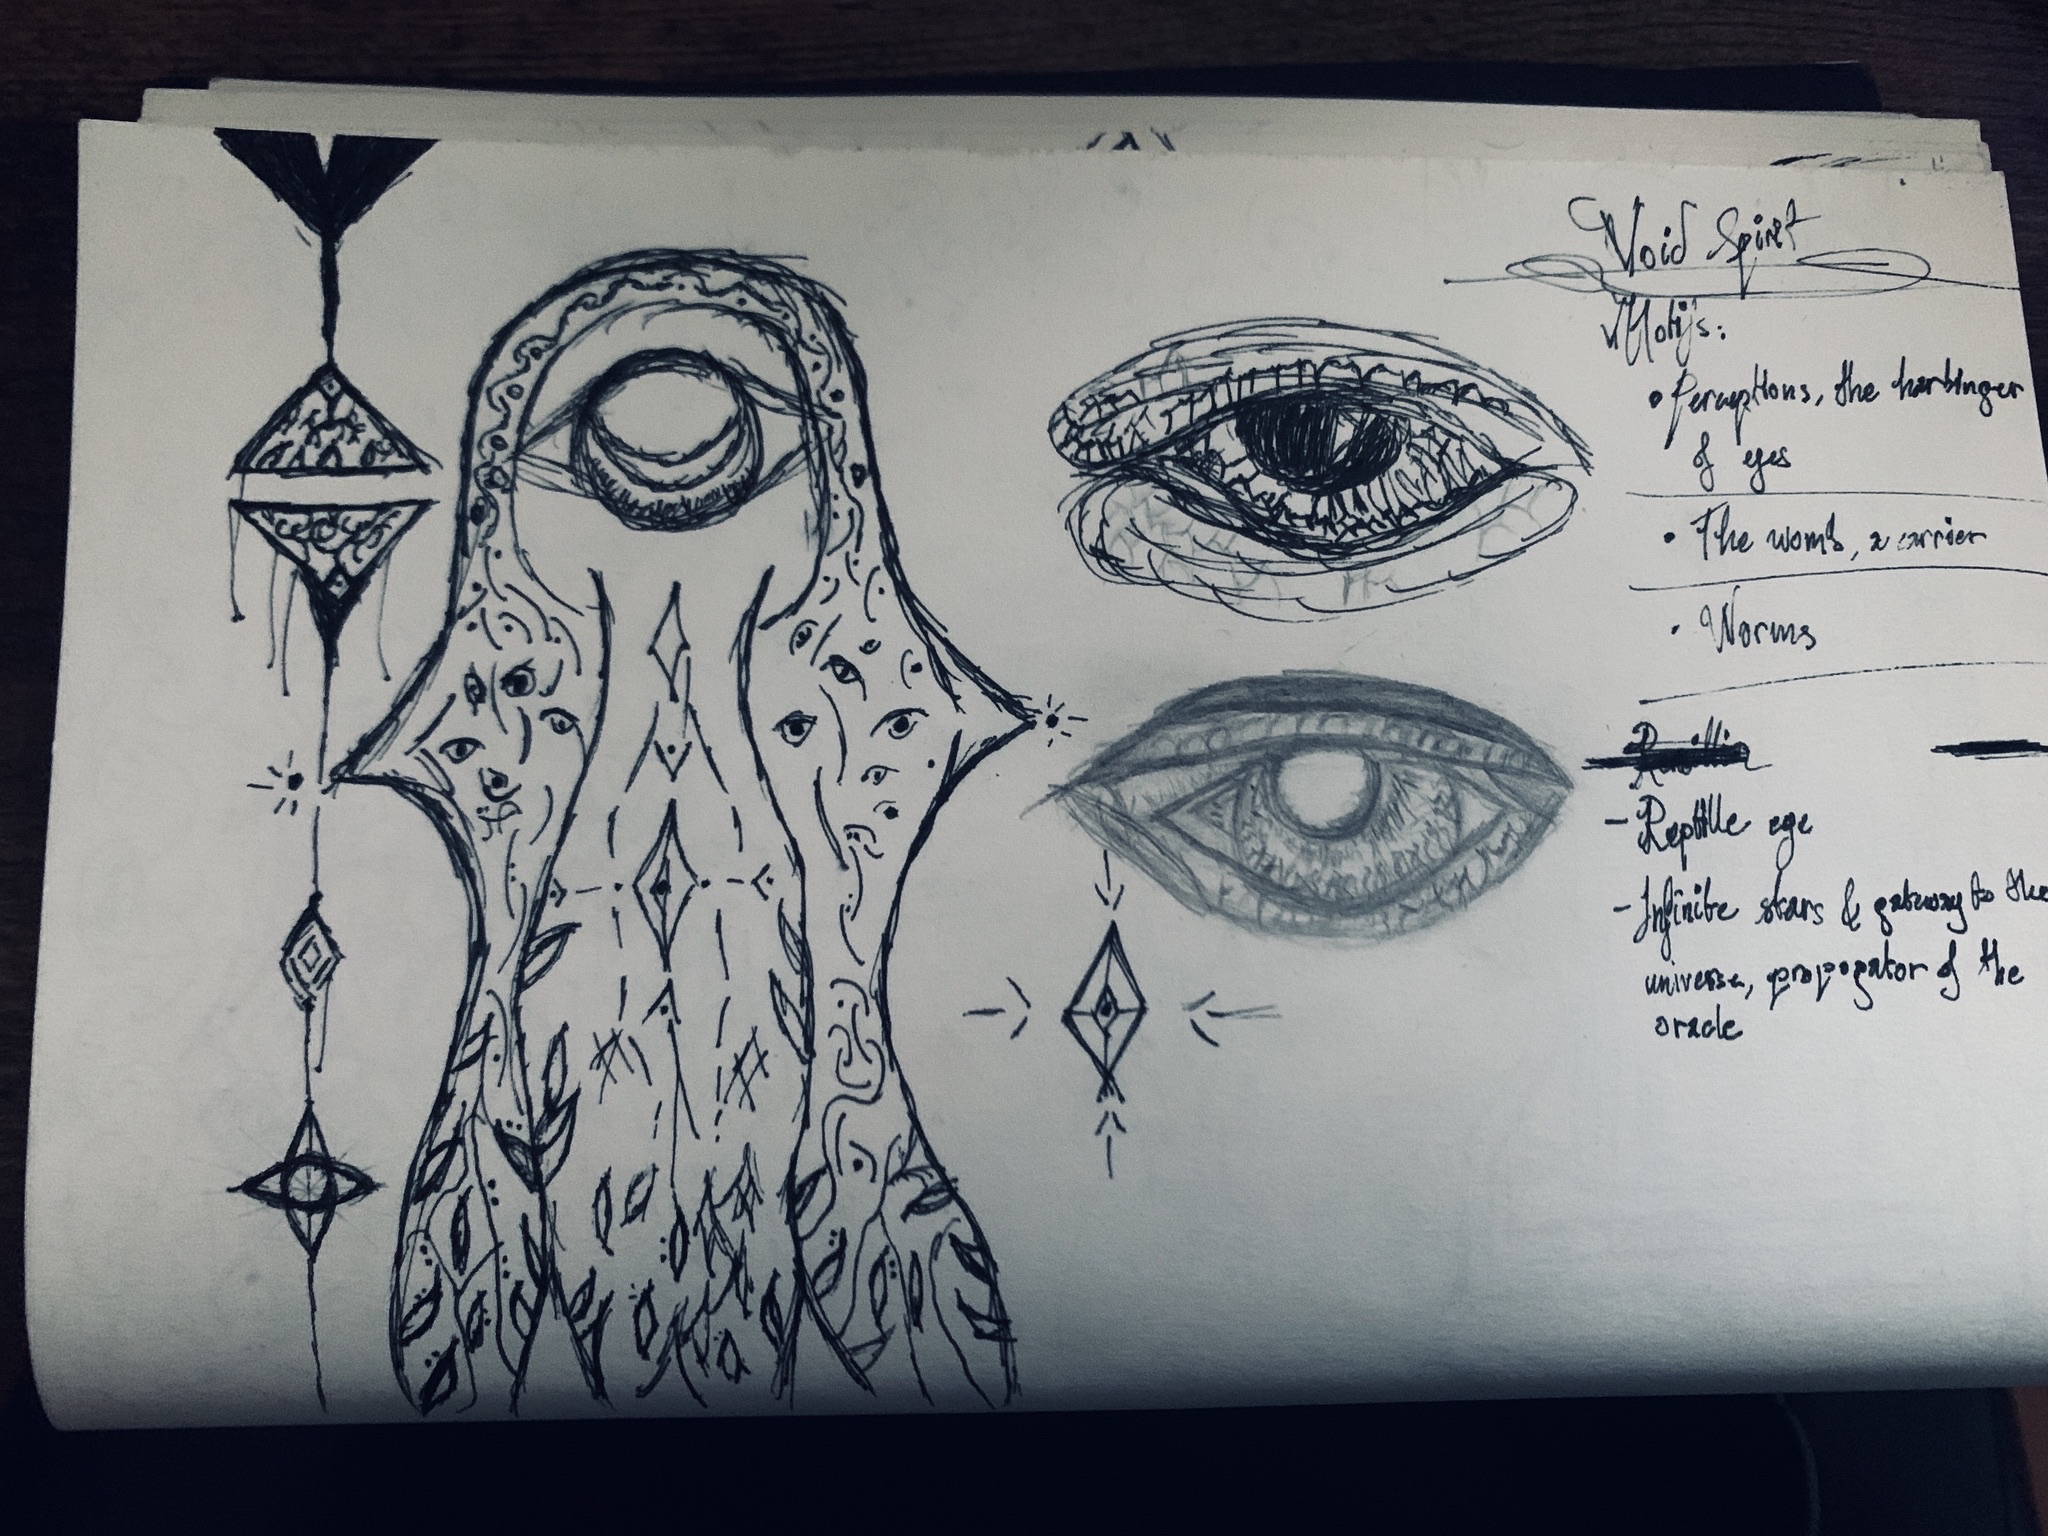 Void Spirit
Motifs:
• Perceptions, the harbinger
of eyes
• The womb, a carrier
• Worms
- Reptille eye
- Infinite stars & gateway to the
universe, propogator of the
oracle